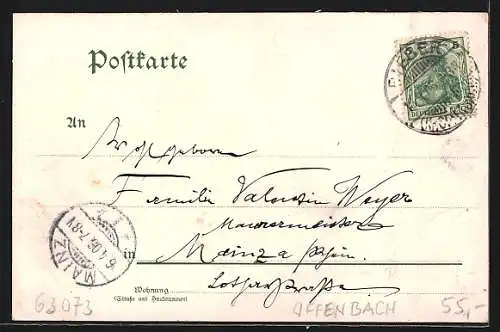 Postkarte
An
Wohlgeboren
Familie Valentin Weyer
Maurermeister
in Mainz a/Rhein.
Lotharstraße.
Wohnung
(Straße und Hausnummer)
MAINZ
6.1.05. 7-8V
63073
OFFENBACH
55,-